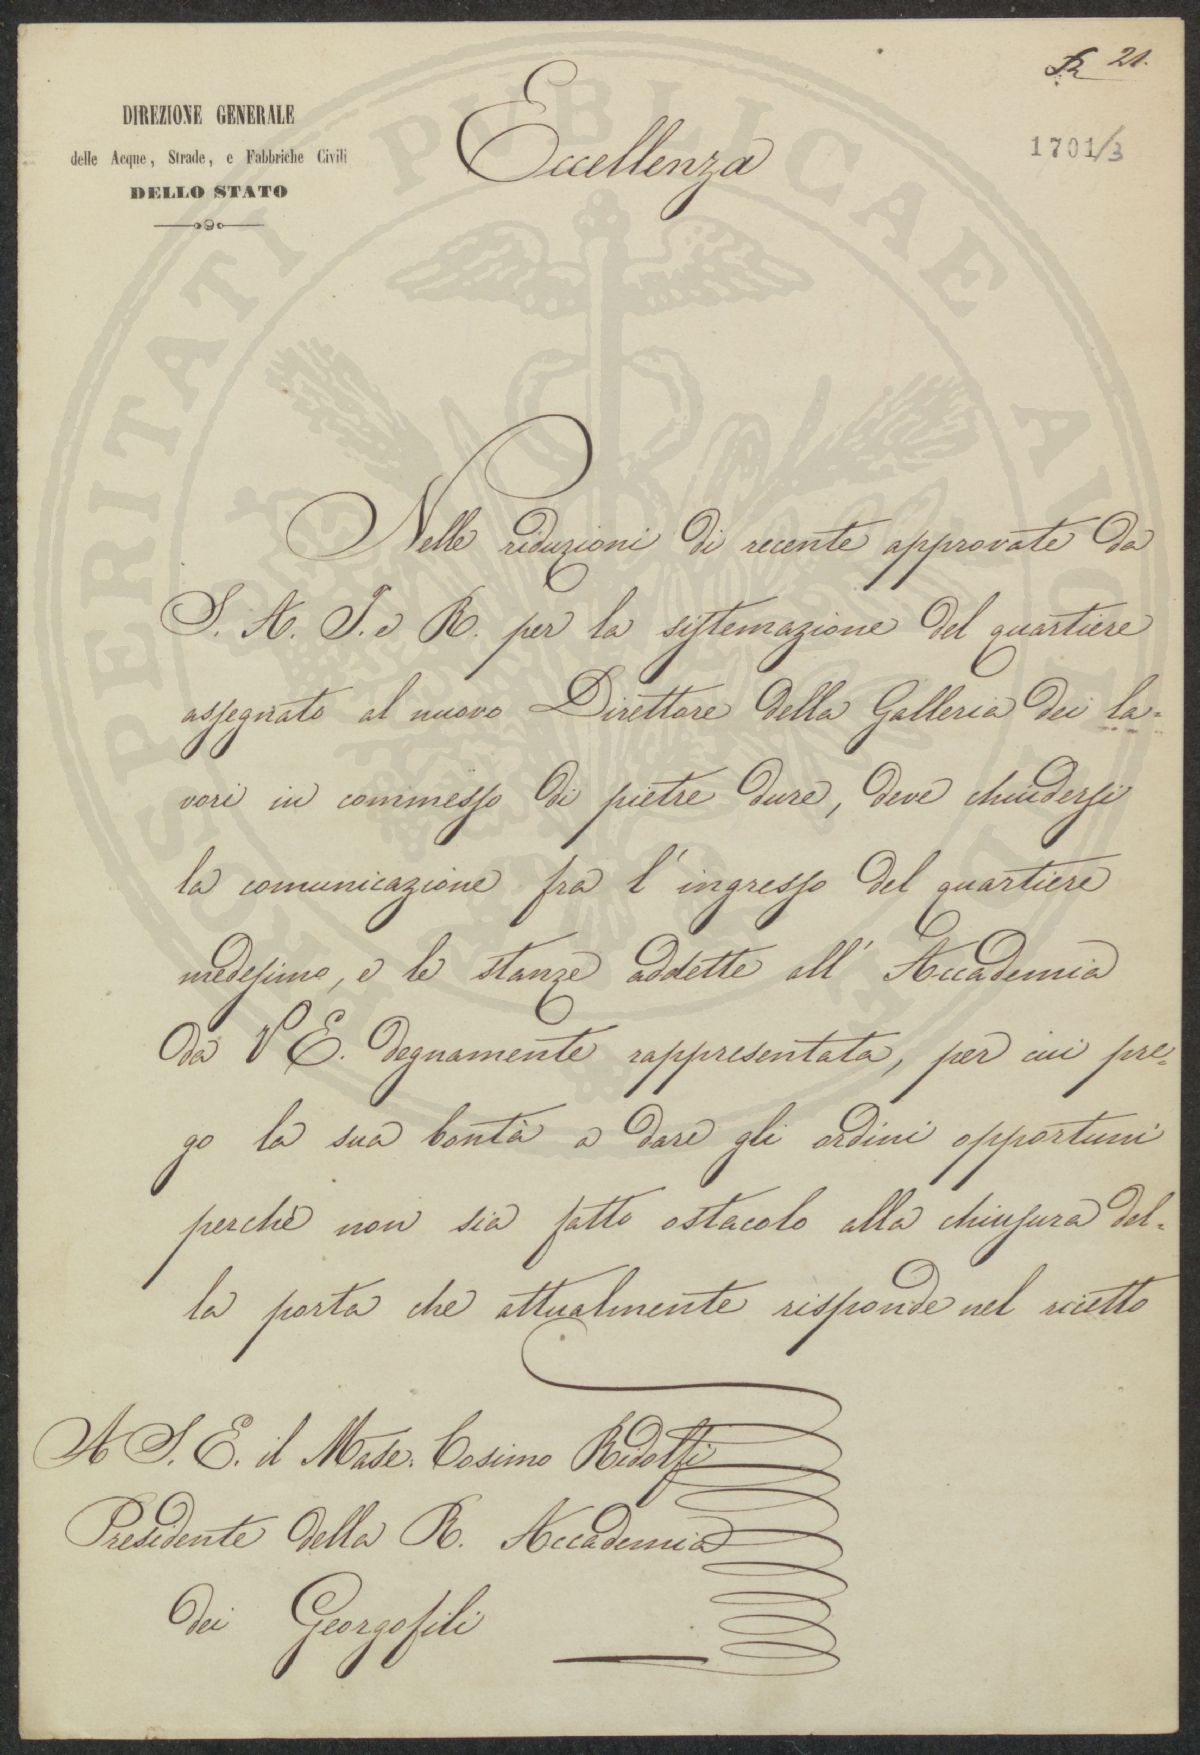 21.
DIREZIONE GENERALE
delle Acque, Strade, e Fabbriche Civili
DELLO STATO
1701/3
Eccellenza
Nelle riduzioni di recente approvate da
S. A. I. e R. per la sistemazione del quartiere
assegnato al nuovo Direttore della Galleria dei la=
vori in commesso di pietre dure, deve chiudersi
la comunicazione fra l' ingresso del quartiere
medesimo, e le stanze addette all' Accademia
da V E. degnamente rappresentata, per cui pre=
go la sua bontà a dare gli ordini opportuni
perchè non sia fatto ostacolo alla chiusura del=
la porta che attualmente risponde nel ricetto
A S. E. il Marse. Cosimo Ridolfi
Presidente della R. Accademia
dei Georgofili
PROSPERITATI PUBLICAE AUGENDAE